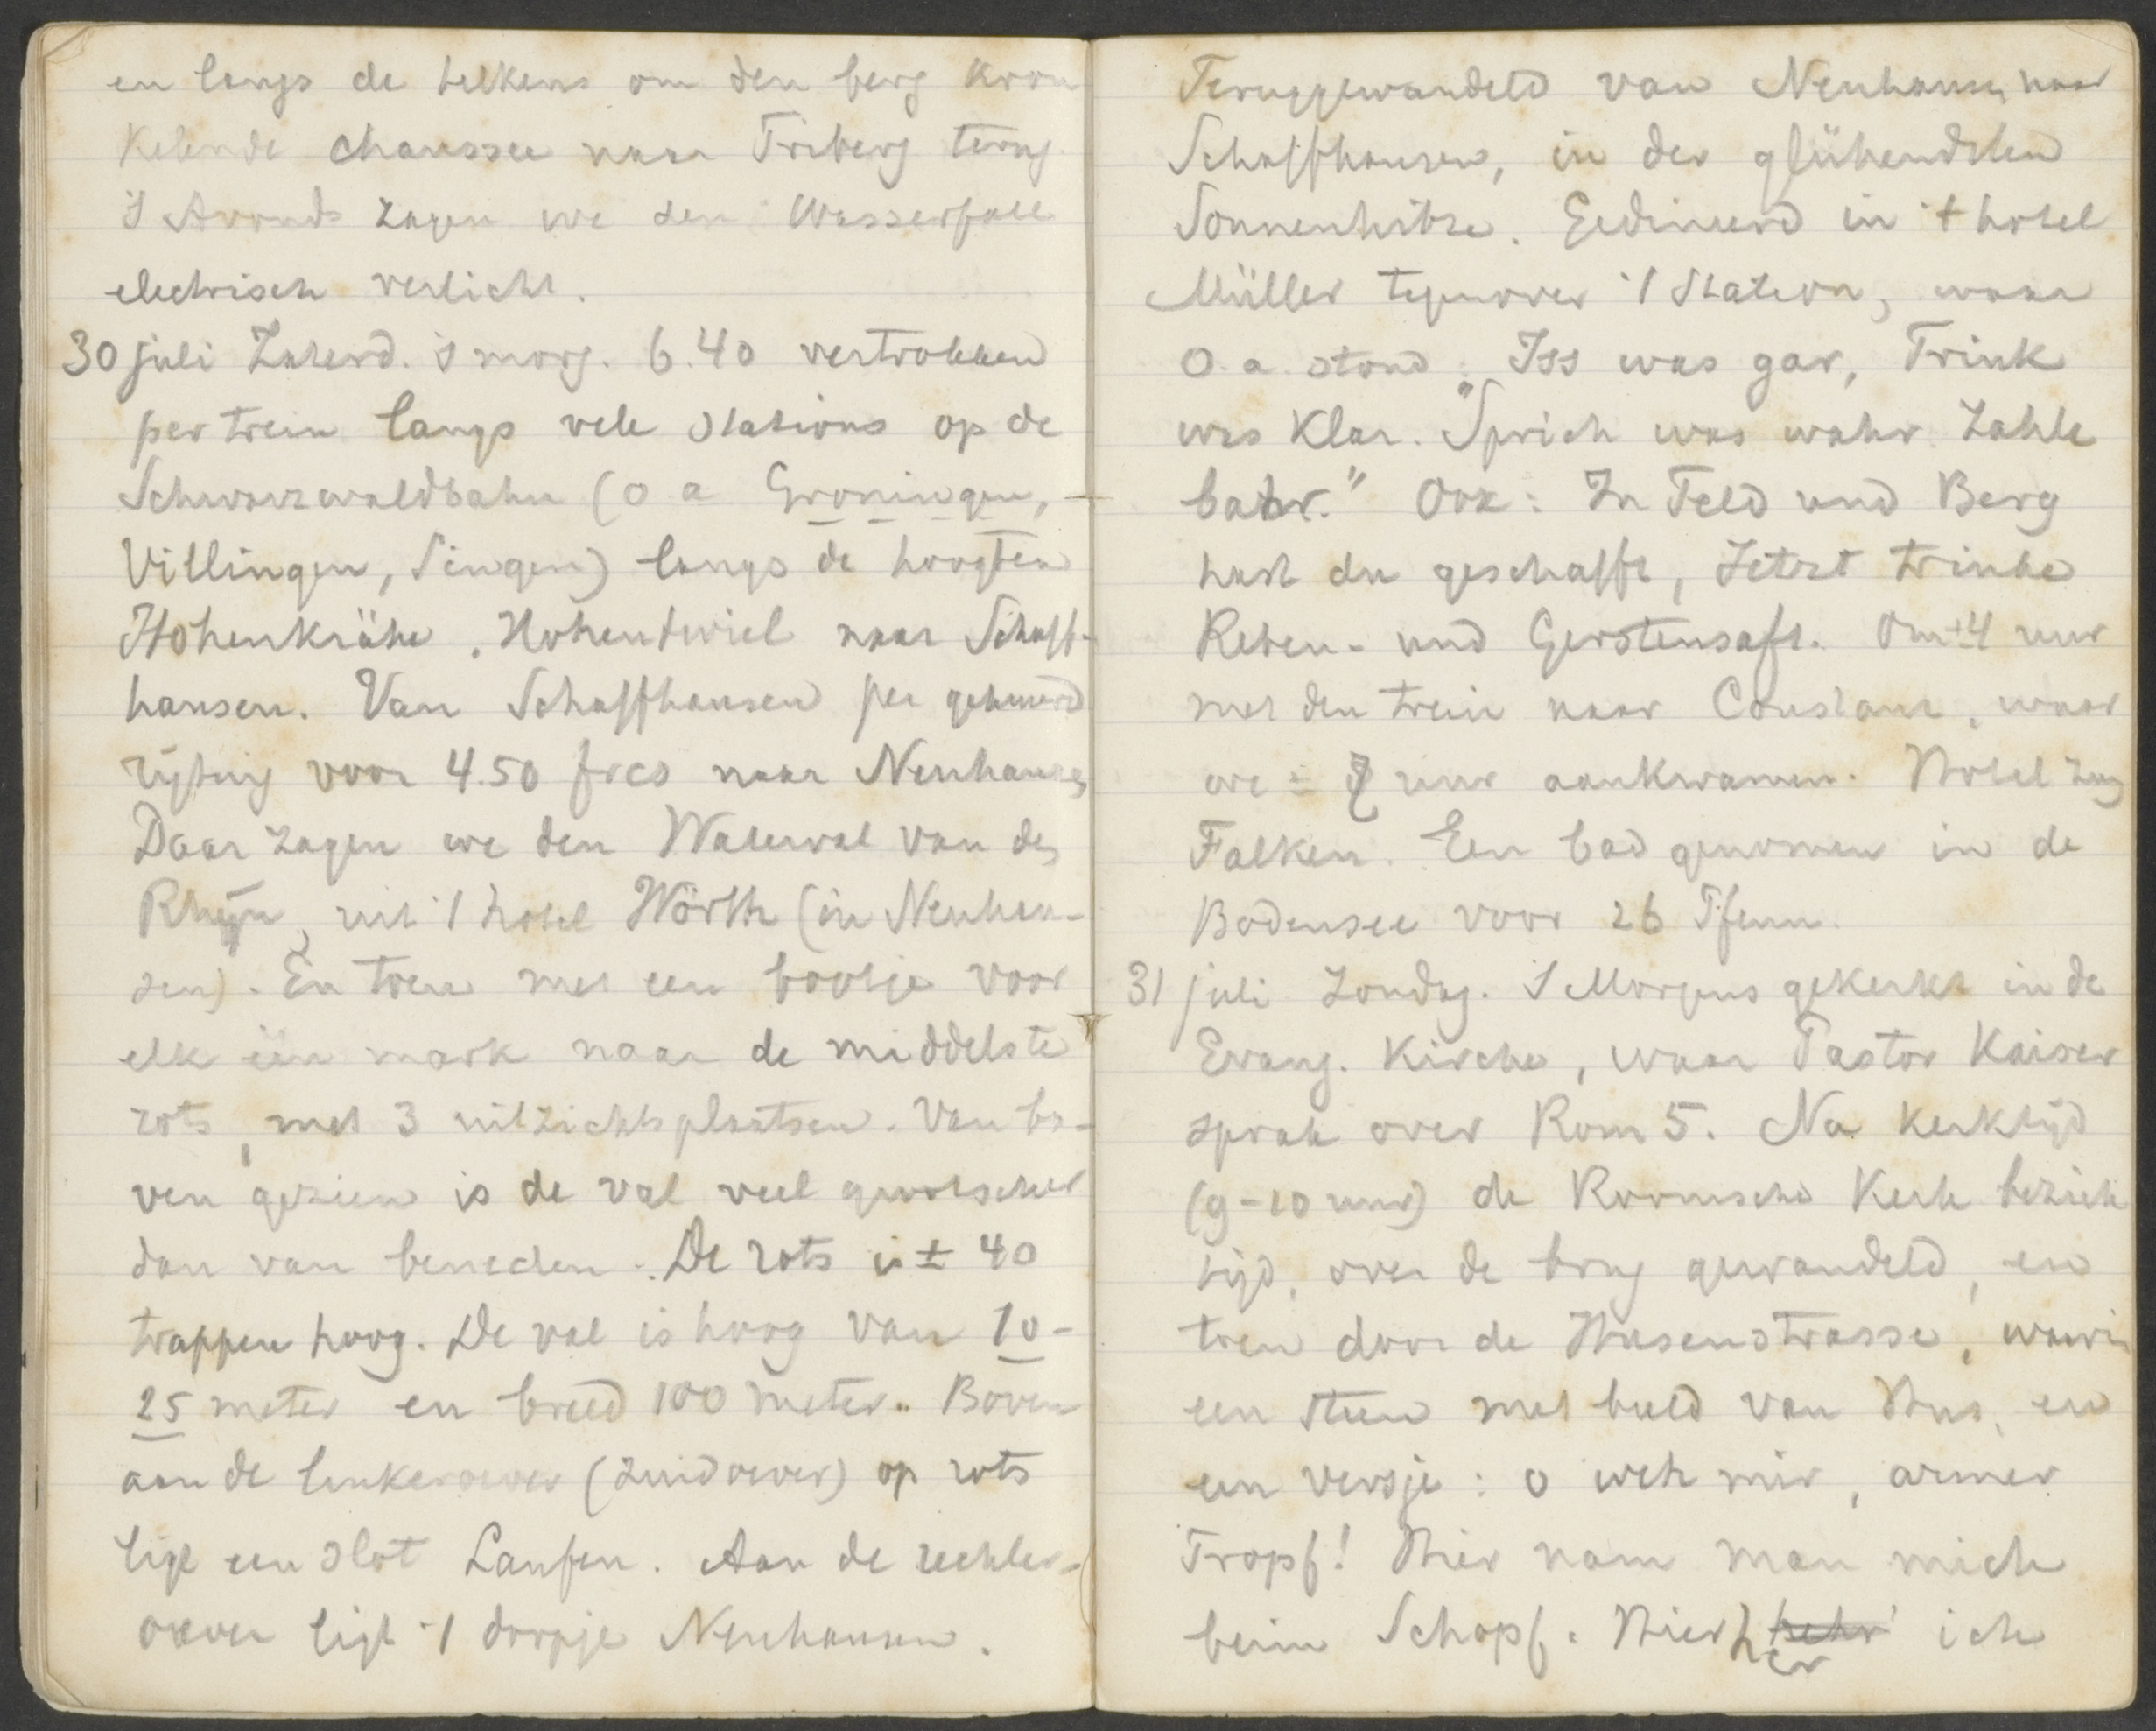 en langs de telkens om den berg kron
kelende chaussee naar Triberg terug
'S Avonds zagen we den Wasserfall
electrisch verlicht.
30 juli Zaterd. 's morg. 6.40 vertrokken
per trein langs vele stations op de
Schwarzwaldbahn (o a Groningen,
Villingen, Singen) langs de hoogten
Hohenkrähe, Hohentwiel naar Schaff-
hausen. Van Schaffhausen per gehuurd
rijtuig voor 4.50 frcs naar Neuhausen
Daar zagen we den Waterval van den
Rhijn, uit 't hotel Wörth (in Neuhau-
sen). En toen met een bootje voor
elk één mark naar de middelste
rots, met 3 uitzichtsplaatsen. Van bo-
ven gezien is de val veel grootscher
dan van beneden. De rots is ± 40
trappen hoog. De val is hoog van 10-
25 meter en breed 100 meter. Boven
aan de linkeroever (zuidoever) op rots
ligt een slot Laufen. Aan de rechter-
oever ligt 't dorpje Neuhausen.
Teruggewandeld van Neuhausen naar
Schaffhausen, in der glühendsten
Sonnenhitze. Gedineerd in 't hotel
Müller tegenover 't Station, waar
o.a. stond: "Iss was gar, Trink
was klar. Sprich was wahr. Zahle
bahr." Ook: In Feld und Berg
hast du geschafft, Jetzt trinke
Reben- und Gerstensaft. Om ± 4 uur
met den trein naar Constanz, waar
we ± 7 uur aankwamen. Hotel zum
Falken. Een bad genomen in de
Bodensee voor 26 Pfenn.
31 juli Zondag. 'S Morgens gekerkt in de
Evang. Kirche, waar Pastor Kaiser
sprak over Rom 5. Na kerktijd
(9-10 uur) de Roomsche Kerk bezich
tigd, over de brug gewandeld, en
toen door de Husenstrasse, waarin
een steen met beeld van Hus, en
een versje: o weh mir, armer
Tropf! Hier nam man mich
beim Schopf. Hierher ich